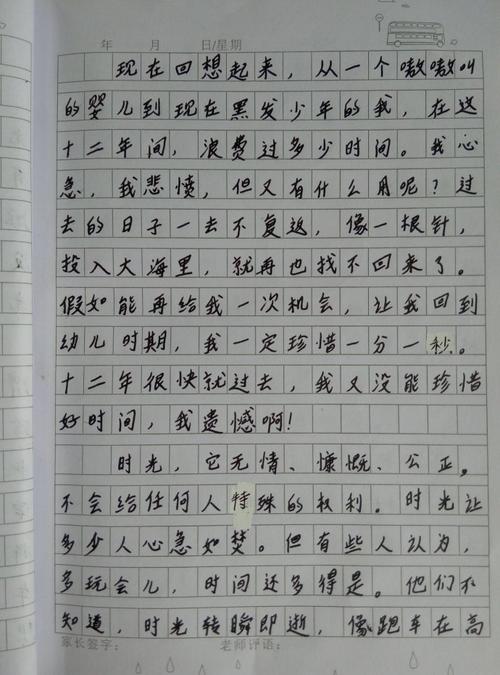 年 月 日/星期
现在回想起来，从一个嗷嗷叫
的婴儿到现在黑发少年的我，在这
十二年间，浪费过多少时间。我心
急，我悲愤，但又有什么用呢？过
去的日子一去不复返，像一根针，
投入大海里，就再也找不回来了。
假如能再给我一次机会，让我回到
幼儿时期，我一定珍惜一分一秒。
十二年很快就过去，我又没能珍惜
好时间，我遗憾啊！
时光，它无情、慷慨、公正。
不会给任何人特殊的权利。时光让
多少人心急如焚。但有些人认为，
多玩会儿，时间还多得是。他们不
知道，时光转瞬即逝，像跑车在高
家长签字： 老师评语：